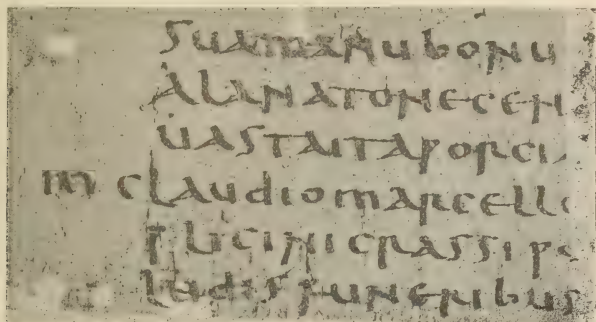 suamanubonu
alanatonecen
uastaitaporcia
m claudiomarcello
p licinicrassipo
ludisfuneribus